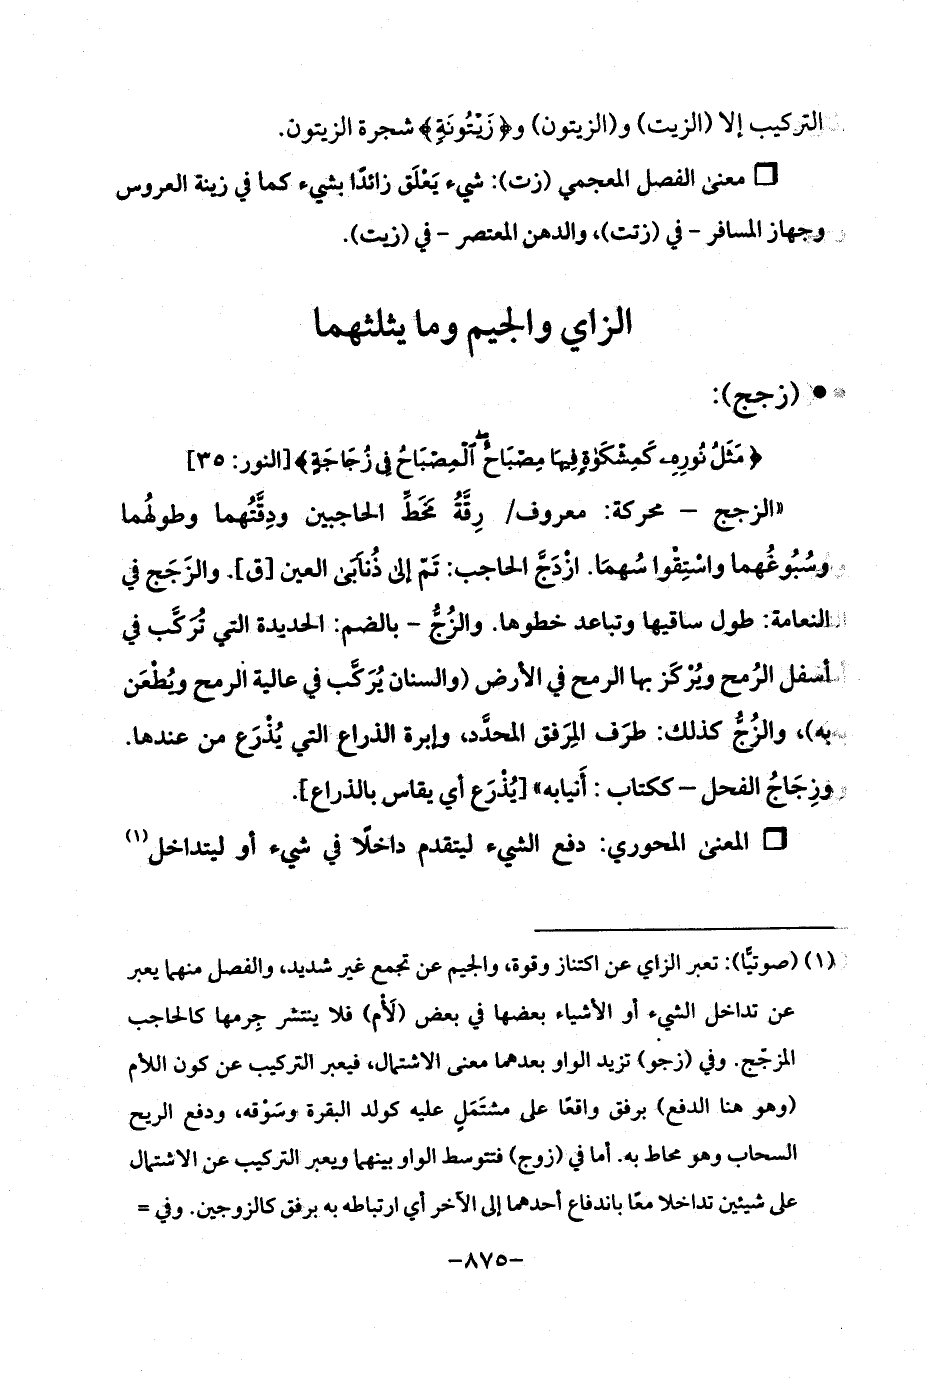 التركيب إلا (الزيت) و(الزيتون) و﴿زَيْتُونَةٍ﴾ شجرة الزيتون.
❒ معنى الفصل المعجمي (زت): شيء يَعْلَق زائدًا بشيء كما في زينة العروس
وجهاز المسافر - في (زتت)، والدهن المعتصر - في (زيت).
الزاي والجيم وما يثلثهما
• (زجج):
﴿مَثَلُ نُورِهِۦ كَمِشْكَوٰةٍ فِيهَا مِصْبَاحٌ ۖ ٱلْمِصْبَاحُ فِى زُجَاجَةٍ﴾ [النور: ٣٥]
«الزجج - محركة: معروف/ رِقَّةُ مَحَطِّ الحاجبين ودِقَّتُهما وطولُهما
وسُبُوغُهما واسْتِقْوا سُهمَا. ازْدَجَّ الحاجب: تَمّ إلى ذُنَابَى العين [ق]. والزَجَج في
النعامة: طول ساقيها وتباعد خطوها. والزُجُّ - بالضم: الحديدة التي تُرَكَّب في
أسفل الرُمح ويُرْكَز بها الرمح في الأرض (والسنان يُرَكَّب في عالية الرمح ويُطْعَن
به)، والزُجُّ كذلك: طرَف المِرفق المحدَّد، وإبرة الذراع التي يُذْرَع من عندها.
وزِجَاجُ الفحل - ككتاب: أَنيابه» [يُذْرَع أي يقاس بالذراع].
❒ المعنى المحوري: دفع الشيء ليتقدم داخلًا في شيء أو ليتداخل(١)
(١) (صوتيًّا): تعبر الزاي عن اكتناز وقوة، والجيم عن تجمع غير شديد، والفصل منهما يعبر
عن تداخل الشيء أو الأشياء بعضها في بعض (لَأْم) فلا ينتشر جِرمها كالحاجب
المزجّج. وفي (زجو) تزيد الواو بعدهما معنى الاشتمال، فيعبر التركيب عن كون اللأم
(وهو هنا الدفع) برفق واقعًا على مشتَمَلٍ عليه كولد البقرة وسَوْقه، ودفع الريح
السحاب وهو محاط به. أما في (زوج) فتتوسط الواو بينهما ويعبر التركيب عن الاشتمال
على شيئين تداخلا معًا باندفاع أحدهما إلى الآخر أي ارتباطه به برفق كالزوجين. وفي =
-٨٧٥-